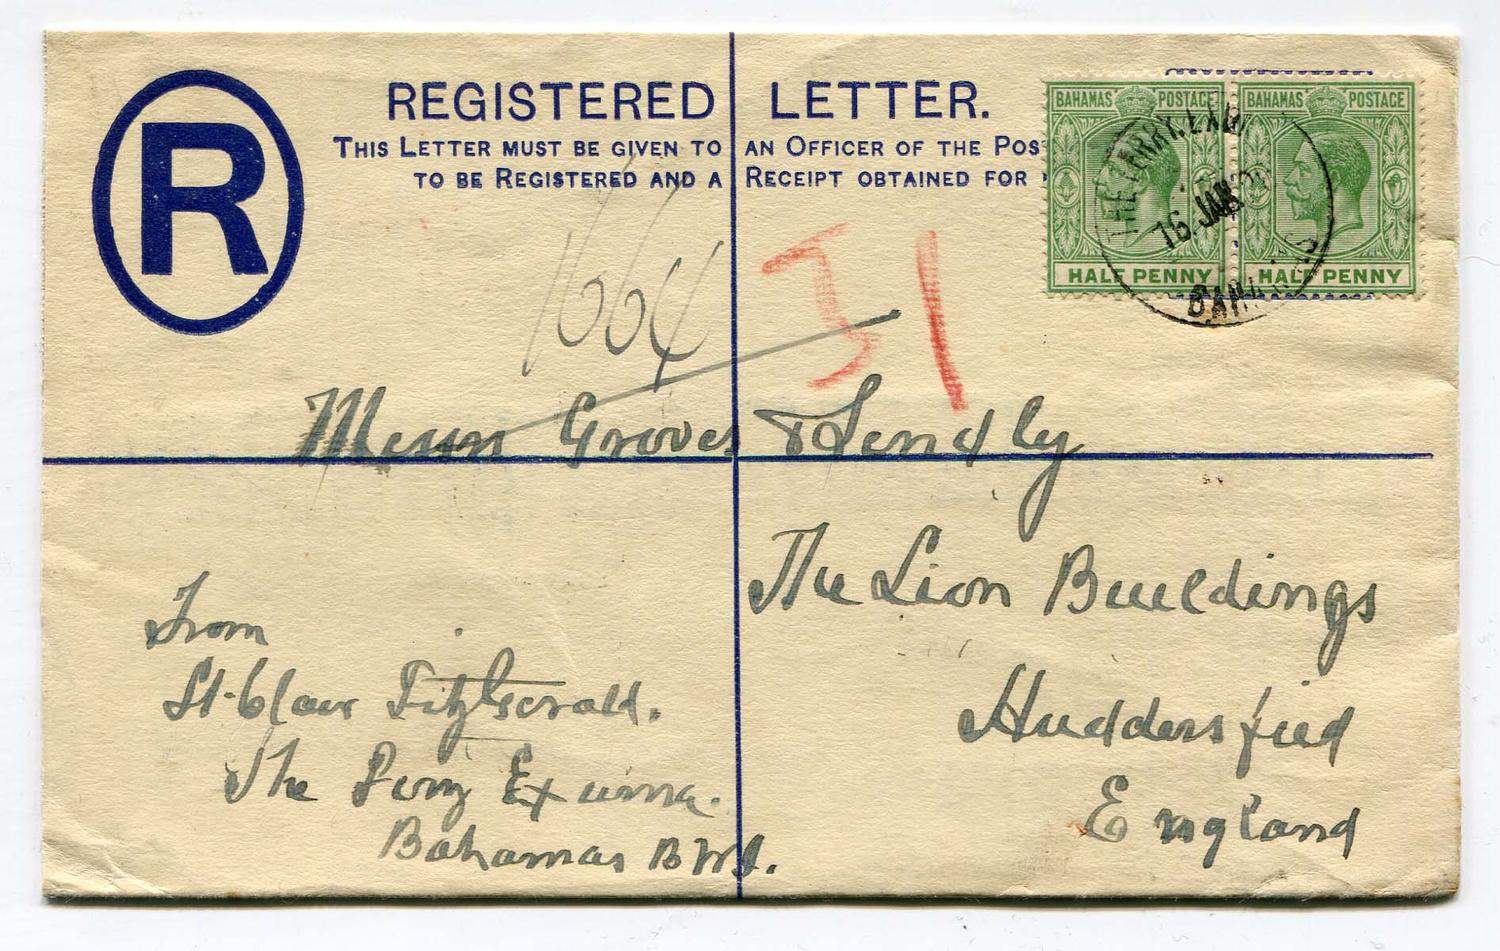 R
REGISTERED LETTER.
THIS LETTER MUST BE GIVEN TO AN OFFICER OF THE POS
TO BE REGISTERED AND A RECEIPT OBTAINED FOR
BAHAMAS POSTAGE
HALF PENNY
BAHAMAS POSTAGE
HALF PENNY
THE FERRY. EXUMA
16 JAN
BAHAMAS
1664
51
Messrs Groves & Lendly
The Lion Buildings
Huddersfield
England
From
St. Clair Fitzgerald.
The Ferry Exuma.
Bahamas B W I.